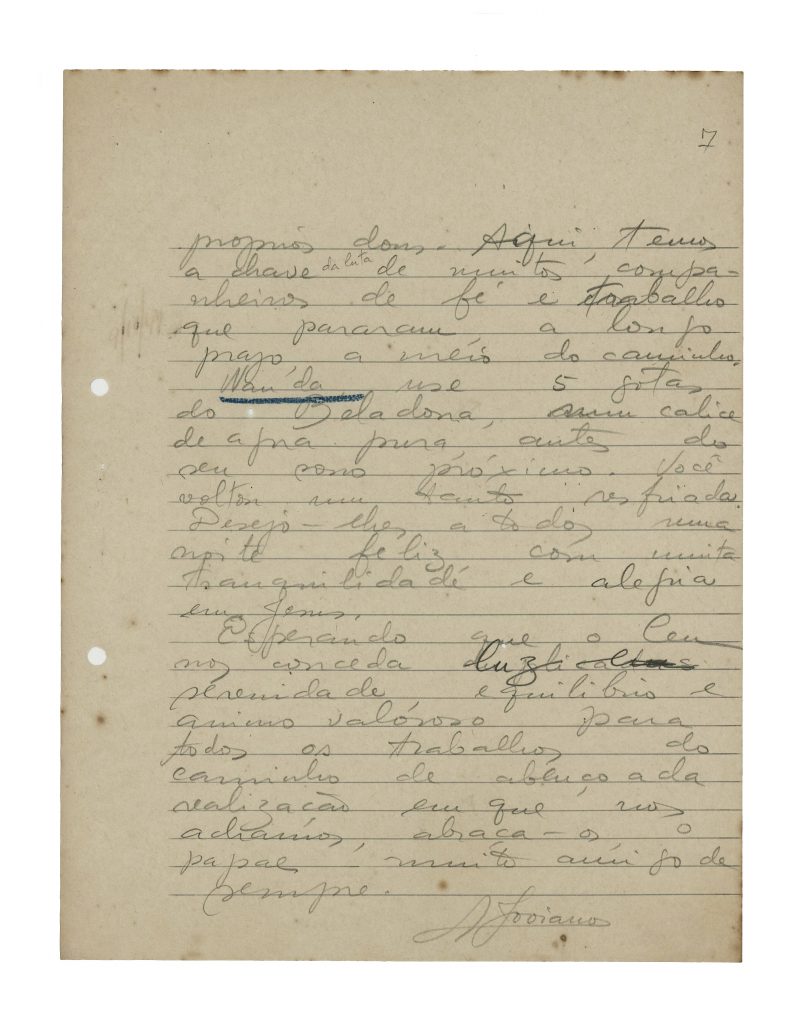 7
proprios dons. Aqui, temos
a chave da luta de muitos compa-
nheiros de fé e trabalho
que pararam, a longo
prazo, a meio do caminho.
Wanda, use 5 gotas
do Beladona, num calice
de agua pura, antes do
seu sono próximo. Você
voltou um tanto resfriada.
Desejo-lhes a todos uma
noite feliz com muita
tranquilidade e alegria
em Jesus.
Esperando que o Ceu
nos conceda luz
serenidade equilibrio e
animo valoroso para
todos os trabalhos do
caminho de abençoada
realização em que nos
achamos, abraça-os o
papae muito amigo de
sempre.
A Joviano